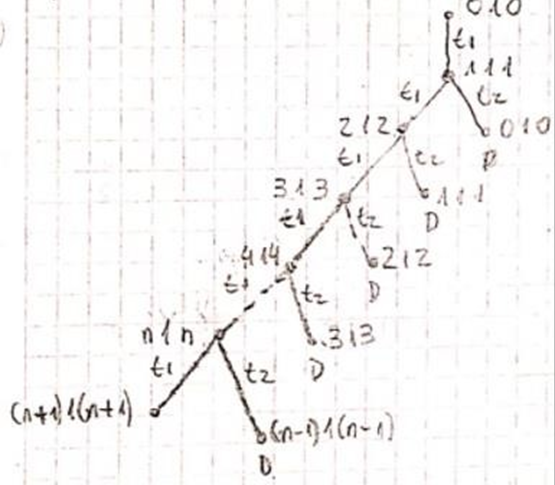 010
t1
111
t1 t2
212 010
D
t1 t2
313 111
D
t1 t2
414 212
D
t1 t2
n1n 313
D
t1 t2
(n+1)1(n+1) (n-1)1(n-1)
D